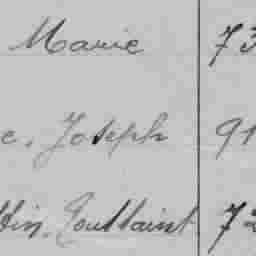 Marie 73
e, Joseph 91
ttin, Toussaint 72